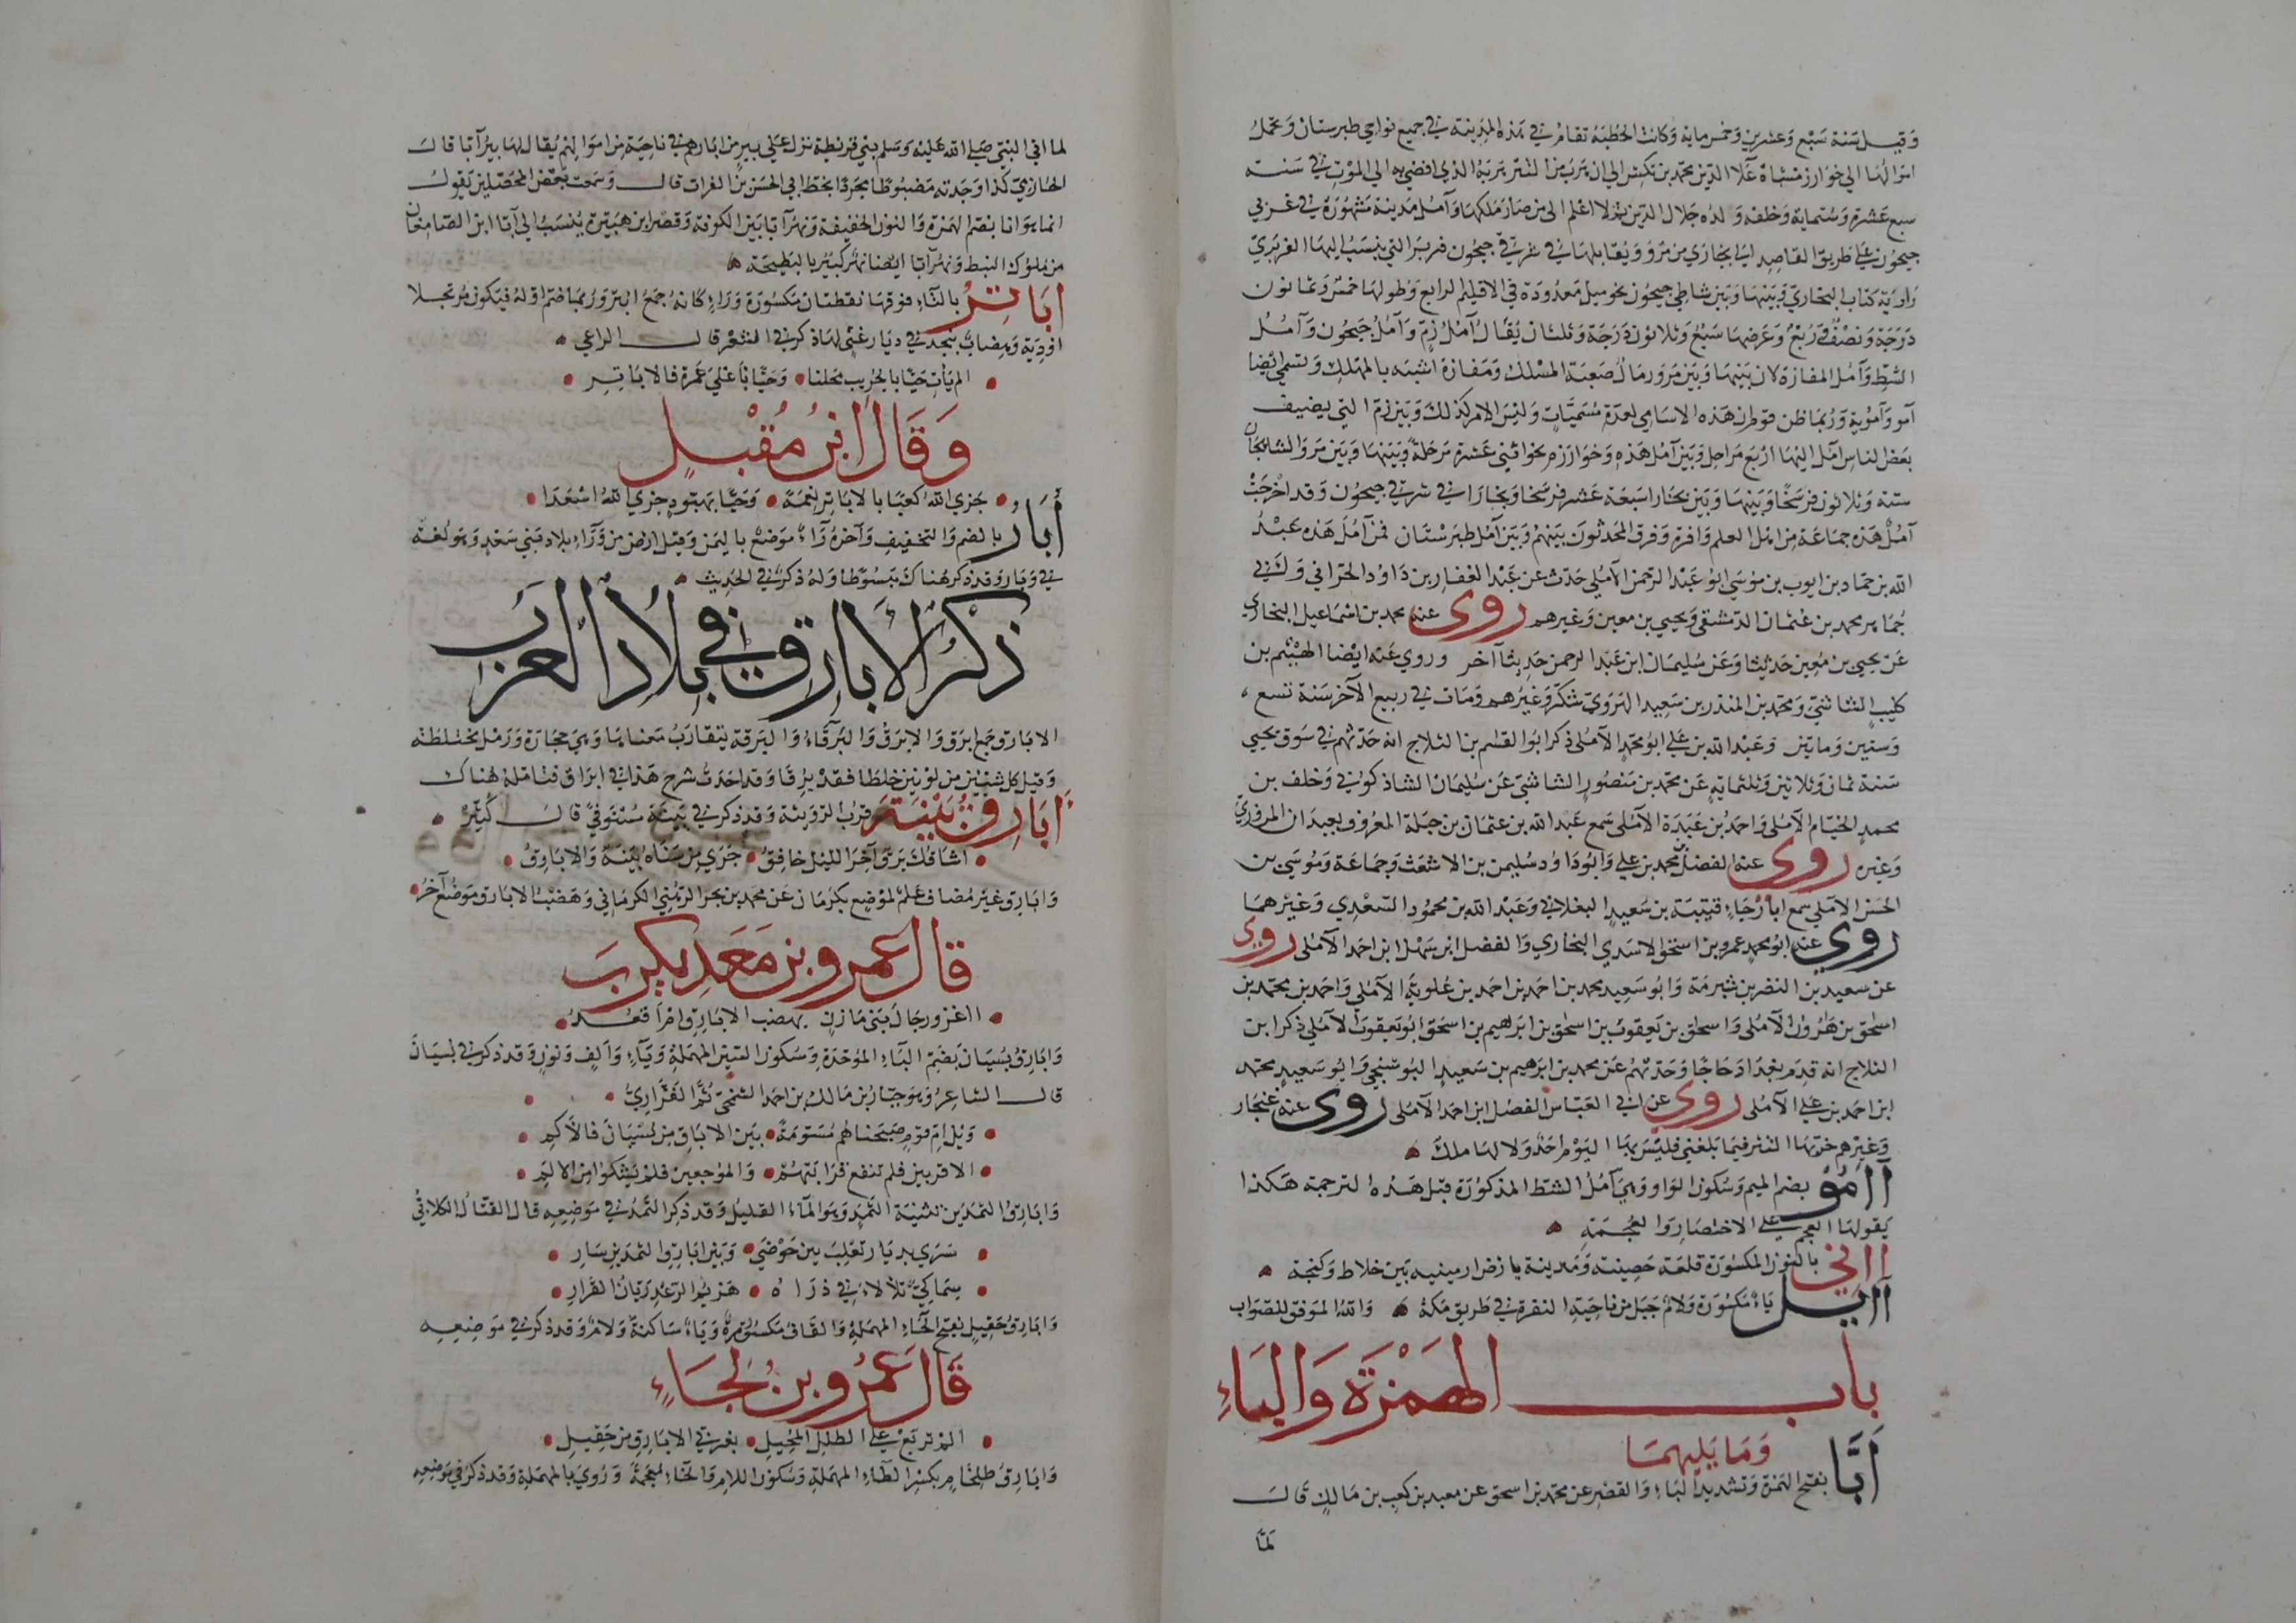 وقيل سنة سبع وعشرين وخمس ماية وكانت الخطبة تقام في هذه المدينة في جميع نواحي طبرستان وتحمل
اموالها الى خوارزمشاه علا الدين محمد بن تكش الى ان هرب من التتر هربه الذي افضى به الى الموت في سنة
سبع عشرة وستماية وخلفه ولده جلال الدين ثم لا اعلم الى من صار ملكها وآمل مدينة مشهورة في غربي
جيحون على طريق القاصد الى بخارى من مرو ويقابلها في شرقي جيحون فربر التي ينسب اليها الفربري
راوية كتاب البخاري وبينها وبين شاطى جيحون نحو ميل معدودة في الاقليم الرابع وطولها خمس وثمانون
درجة ونصف وربع وعرضها سبع وثلاثون درجة وثلثان يقال آمل زم وآمل جيحون وآمل
الشط وآمل المفازة لان بينها وبين مرو رمال صعبة المسلك ومفازة اشبه بالمهلك وتسمى ايضا
آمو وآمويه وربما ظن قوم ان هذه الاسامي لعدة مسميات وليس الامر كذلك وبين زم التي يضيف
بعض الناس آمل اليها اربع مراحل وبين آمل هذه وخوارزم نحو اثني عشرة مرحلة وبينها وبين مرو الشاهجان
ستة وثلاثون فرسخا وبينها وبين بخارا سبعة عشر فرسخا وبخارا في شرقي جيحون وقد اخرجت
آمل هذه جماعة من اهل العلم وافرة وفرق المحدثون بينهم وبين آمل طبرستان فمن آمل هذه عبد
الله بن حماد بن ايوب بن موسى ابو عبد الرحمن الآملي حدث عن عبد الغفار بن داود الحراني ولفي
جماهر محمد بن عثمان الدمشقي ويحيى بن معين وغيرهم روى عنه محمد بن اسماعيل البخاري
عن يحيى بن معين حديثا وعن سليمان ابن عبد الرحمن حديثا آخر وروى عنه ايضا الهيثم بن
كليب الشاشي ومحمد بن المنذر بن سعيد الهروي شكر وغيرهم ومات في ربيع الآخر سنة تسع
وستين ومايتين وعبد الله بن علي ابو محمد الآملي ذكر ابو القاسم بن الثلاج انه حدثهم في سوق يحيى
سنة ثمان وثلاثين وثلثماية عن محمد بن منصور الشاشي عن سليمان الشاذكوني وخلف بن
محمد الخيام الآملي واحمد بن عبدة الآملي سمع عبد الله بن عثمان بن جبلة المعروف بعبدان المروزي
وغيره روى عنه الفضل بن محمد بن علي وابو داود سليمن بن الاشعث وجماعة وموسى بن
الحسن الآملي سمع ابا رجاء قتيبة بن سعيد البغلاني وعبد الله بن محمود السعدي وغيرهما
روى عنه ابو محمد عمرو بن اسحق الاسدي البخاري والفضل ابن سهل ابن احمد الآملي روى
عن سعيد بن النضر بن شبرمة وابو سعيد محمد بن احمد بن احمد بن علويه الآملي واحمد بن محمد بن
اسحق بن هرون الآملي واسحق بن يعقوب بن اسحق بن ابراهيم بن اسحق ابو يعقوب الآملي ذكر ابن
الثلاج انه قدم بغداد حاجا وحدثهم عن محمد بن ابراهيم بن سعيد البوشنجي وابو سعيد محمد
ابن احمد بن علي الآملي روى عن ابي العباس الفضل ابن احمد الآملي روى عنه غنجار
وغيرهم خربها التتر فيما بلغني فليس بها اليوم احد ولا لها ملك
اامو بضم الميم وسكون الواو وهي آمل الشط المذكورة قبل هذه الترجمة هكذا
يقولها العجم على الاختصار والعجمة
ااني بالنون المكسورة قلعة حصينة ومدينة بارض ارمينيه بين خلاط وكنجة
اايل ياء مكسورة ولام جبل من ناحية النقرة في طريق مكة والله الموفق للصواب
باب الهمزة والباء
وما يليهما
ابا بفتح الهمزة وتشديد الباء والقصر عن محمد بن اسحق عن معبد بن كعب بن مالك قال
لما
لما اتى النبي صلى الله عليه وسلم بني قريظة نزل على بير من ابارهم في ناحية من اموالهم يقال لها بير آبا قال
الحازمي كذا وجدته مضبوطا مجردا بخط ابي الحسن بن الفرات قال وسمعت بعض المحصلين يقول
انما هو انا بضم الهمزة والنون الخفيفة ونهر آبا بين الكوفة وقصر ابن هبيرة ينسب الى آبا ابن الصامغان
من ملوك النبط ونهر آبا ايضا نهر كبير بالبطيحة
اباتر بالتاء فوقها نقطتان مكسورة وراء كانه جمع ابتر وربما ضم اوله فيكون مرتجلا
اودية وهضاب بنجد في ديار غني لها ذكر في الشعر قال الراعي
الم يأت حيا بالجريب محلنا وحيا باعلى غمرة فالاباتر
وقال ابن مقبل
جزى الله كعبا بالاباتر نعمة وحيا بهبود جزى الله اسعدا
أبار بالضم والتخفيف وآخره راء موضع باليمن وقيل ارض من وراء بلاد بني سعد وهو لغة
في وبار وقد ذكر هناك مبسوطا وله ذكر في الحديث
ذكر الابارق في بلاد العرب
الابارق جمع ابرق والابرق والبرقاء والبرقة يتقارب معناها وهي حجارة ورمل مختلطة
وقيل كل شيئين من لونين خلطا فقد برقا وقد اجدت شرح هذا في ابراق فتامله هناك
أبارق بينة قرب الرويثة وقد ذكر في بينة مستوفى قال كثير
اشاقك برق آخر الليل خافق جرى من سناه بينة والابارق
وابارق غير مضاف علم لموضع بكرمان عن محمد بن بحر الرهني الكرماني وهضب الابارق موضع آخر
قال عمرو بن معديكرب
ااغزو رجال بني مازن بهضب الابارق ام اقعد
وابارق بسيان بضم الباء الموحدة وسكون السين المهملة وياء والف ونون وقد ذكر في بسيان
قال الشاعر وهو جبار بن مالك بن احمد الشمخي ثم الفزاري
ويل ام قوم صبحناهم مسومة بين الابارق من بسيان فالاكم
الاقربين فلم تنفع قرابتهم والموجعين فلم يشكوا من الالم
وابارق الثمدين تثنية الثمد وهو الماء القليل وقد ذكر الثمد في موضعه قال القتال الكلابي
سرى بديار تغلب بين حوضى وبين ابارق الثمدين سار
سماكي تلالا في ذراه هزيم الرعد ريان القرار
وابارق حقيل بفتح الحاء المهملة والقاف مكسورة وياء ساكنة ولام وقد ذكر في موضعه
قال عمرو بن لجاء
الم تربع على الطلل المحيل بغربي الابارق من حقيل
وابارق طلخام بكسر الطاء المهملة وسكون اللام والخاء معجمة وروي بالمهملة وقد ذكر في موضعه